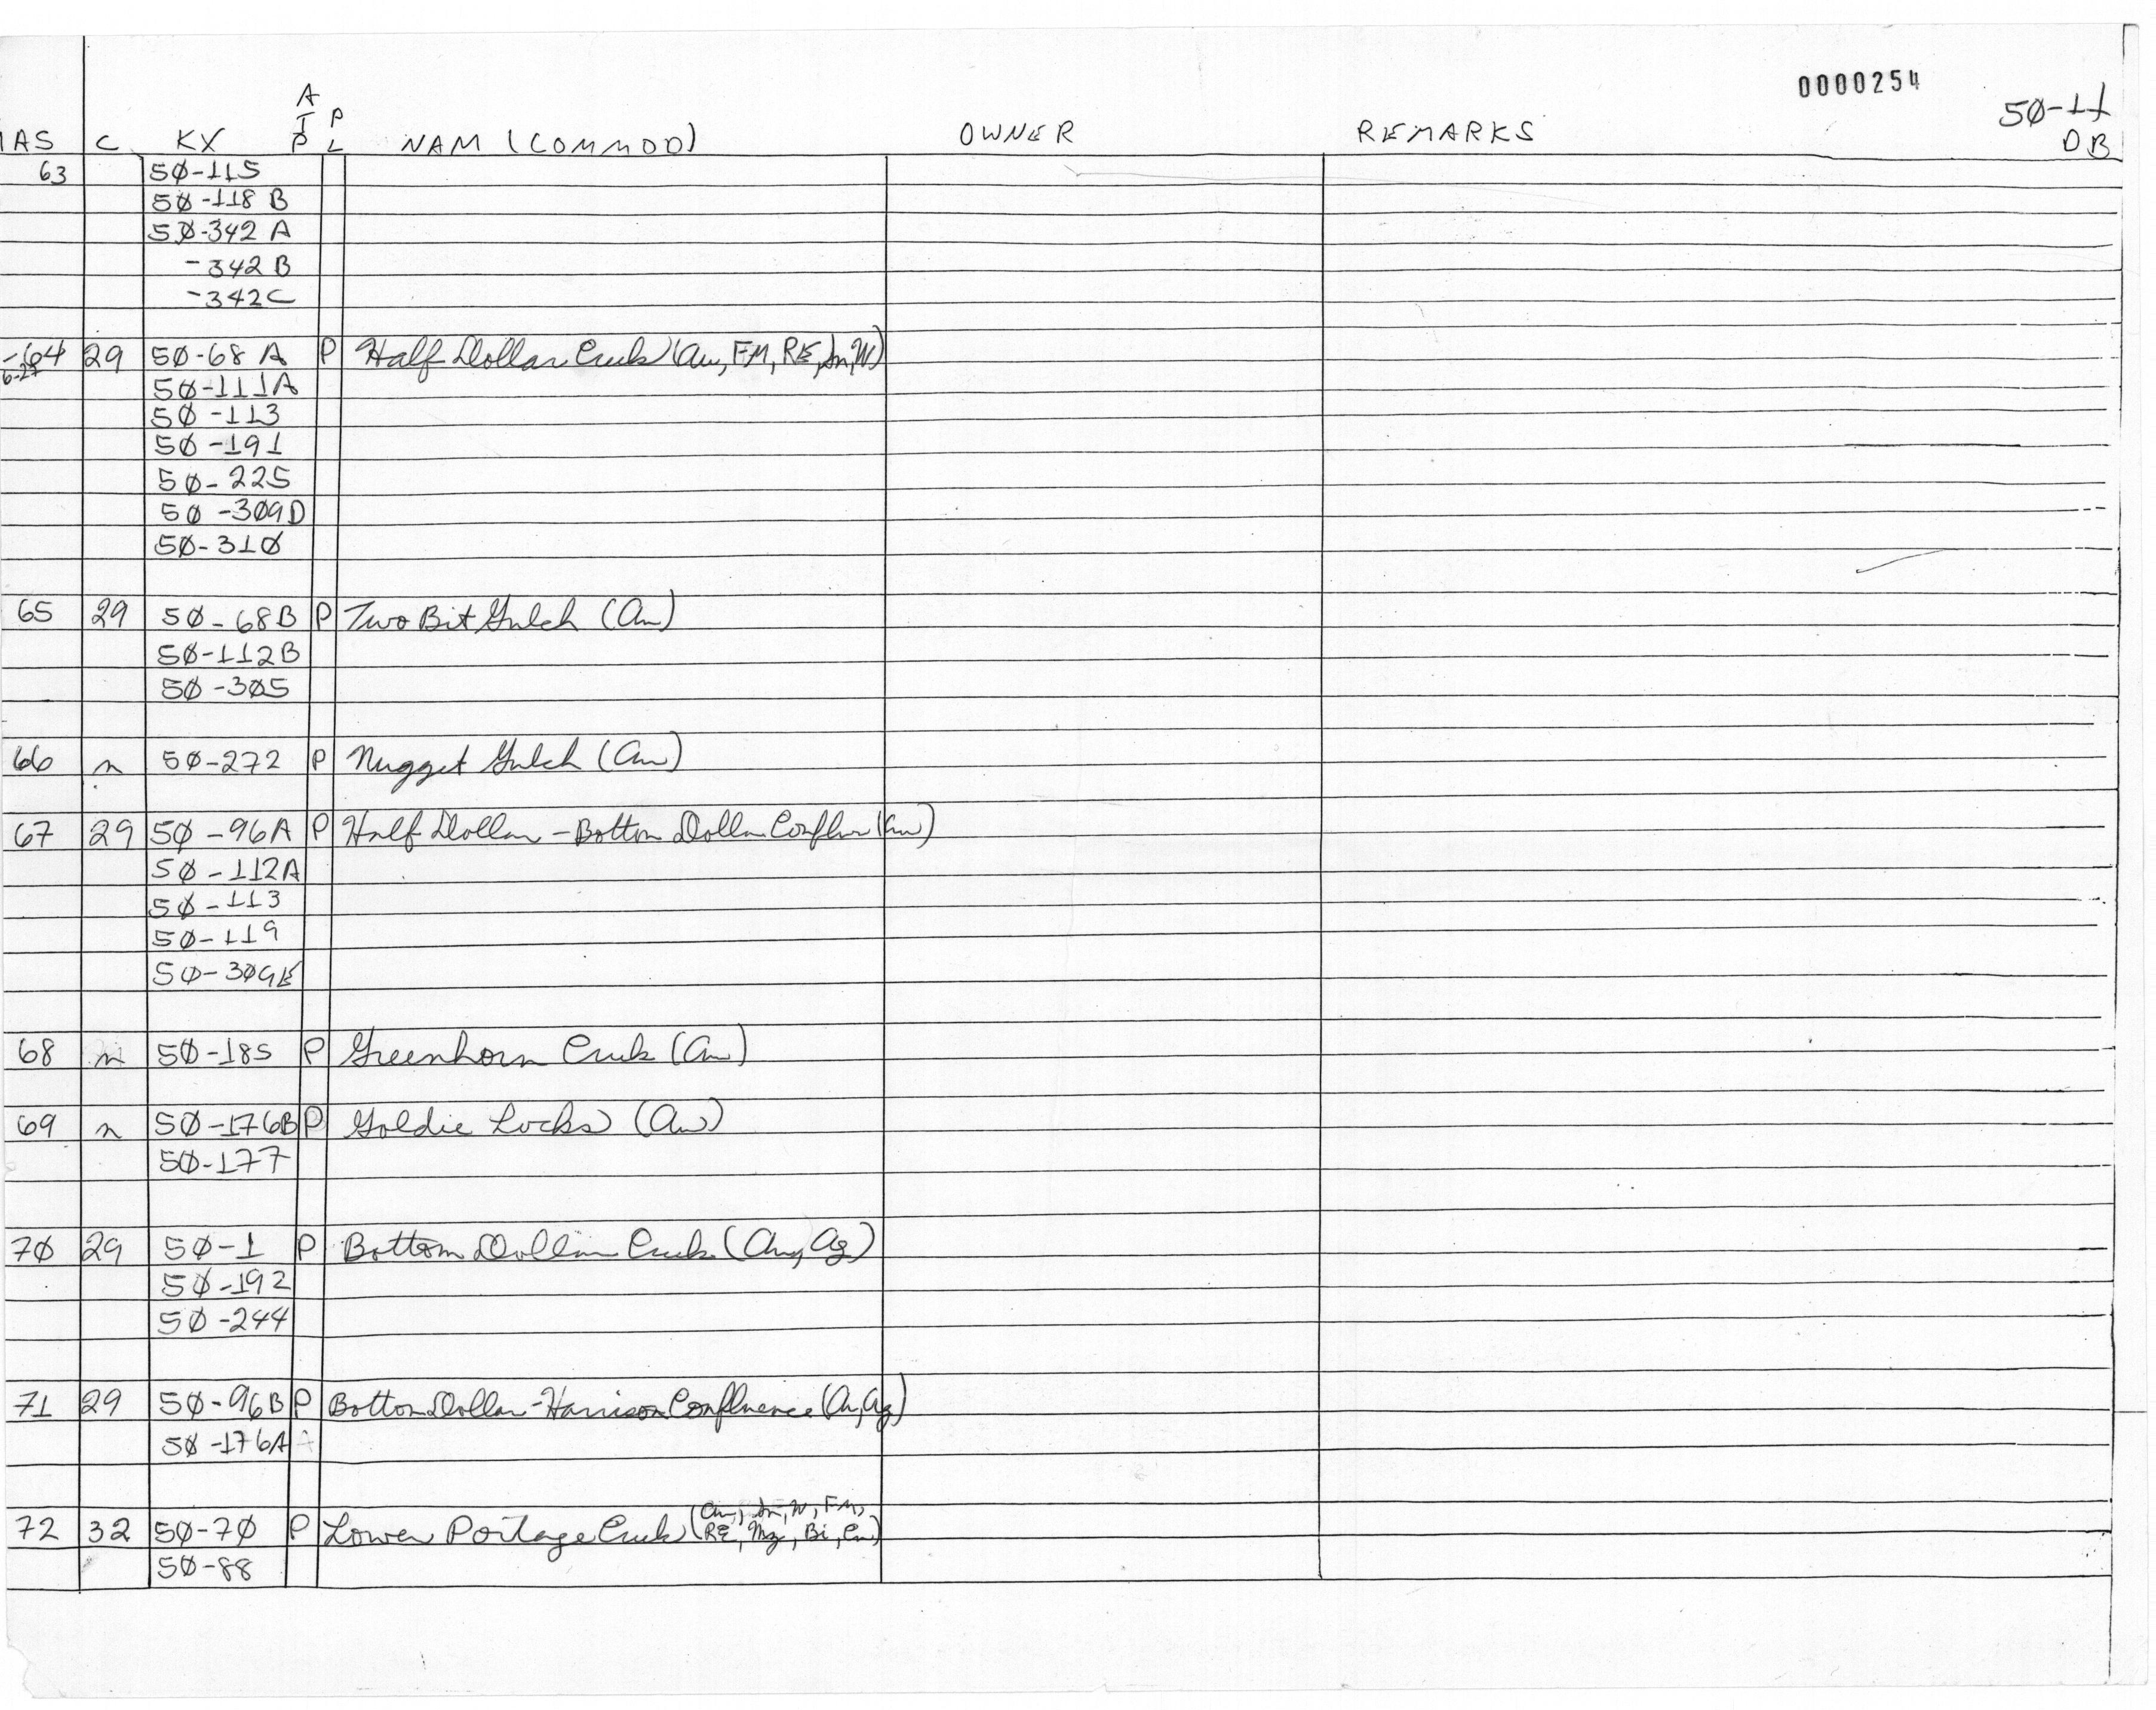 0000254
50-11
DB
MAS C KX A/D PL NAM (COMMOD) OWNER REMARKS
63 5Ø-115
5Ø-118 B
5Ø-342 A
-342 B
-342C
-64 29 5Ø-68 A P Half Dollar Creek (Au, FM, RE, Sn, W)
5Ø-111A
5Ø-113
5Ø-191
5Ø-225
5Ø-3Ø9D
5Ø-31Ø
65 29 5Ø-68B P Two Bit Gulch (Au)
5Ø-112B
5Ø-3Ø5
66 n 5Ø-272 P Nugget Gulch (Au)
67 29 5Ø-96A P Half Dollar - Bottom Dollar Conflu (Au)
5Ø-112A
5Ø-113
5Ø-119
5Ø-3Ø9E
68 n 5Ø-185 P Greenhorn Creek (Au)
69 n 5Ø-176B P Goldie Locks (Au)
5Ø-177
7Ø 29 5Ø-1 P Bottom Dollar Creek (Au, Ag)
5Ø-192
5Ø-244
71 29 5Ø-96B P Bottom Dollar-Harrison Confluence (Au, Ag)
5Ø-176A
72 32 5Ø-7Ø P Lower Portage Creek (Au, Sn, W, FM,
RE, Mg, Bi, Cu)
5Ø-88